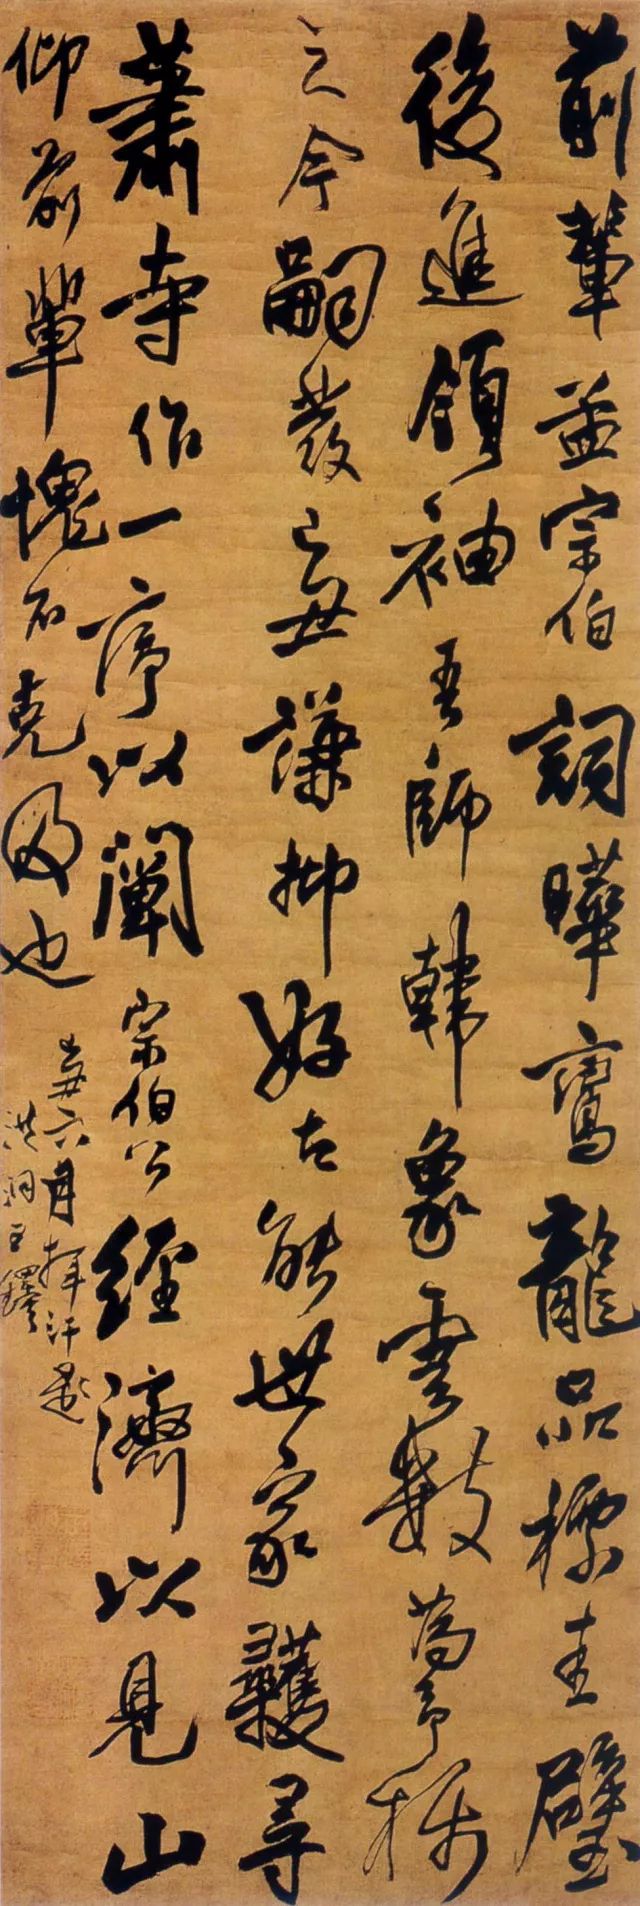 前輩孟宗伯詞曄鸞龍品標圭璧
後進領袖吾師韓象雲數為予稱
之今嗣發已丑謙抑好古能世家護尋
蕭寺作一序以闡宗伯公經濟以見山
仰前輩愧不克及也
六月揮汗題
洪洞王鐸